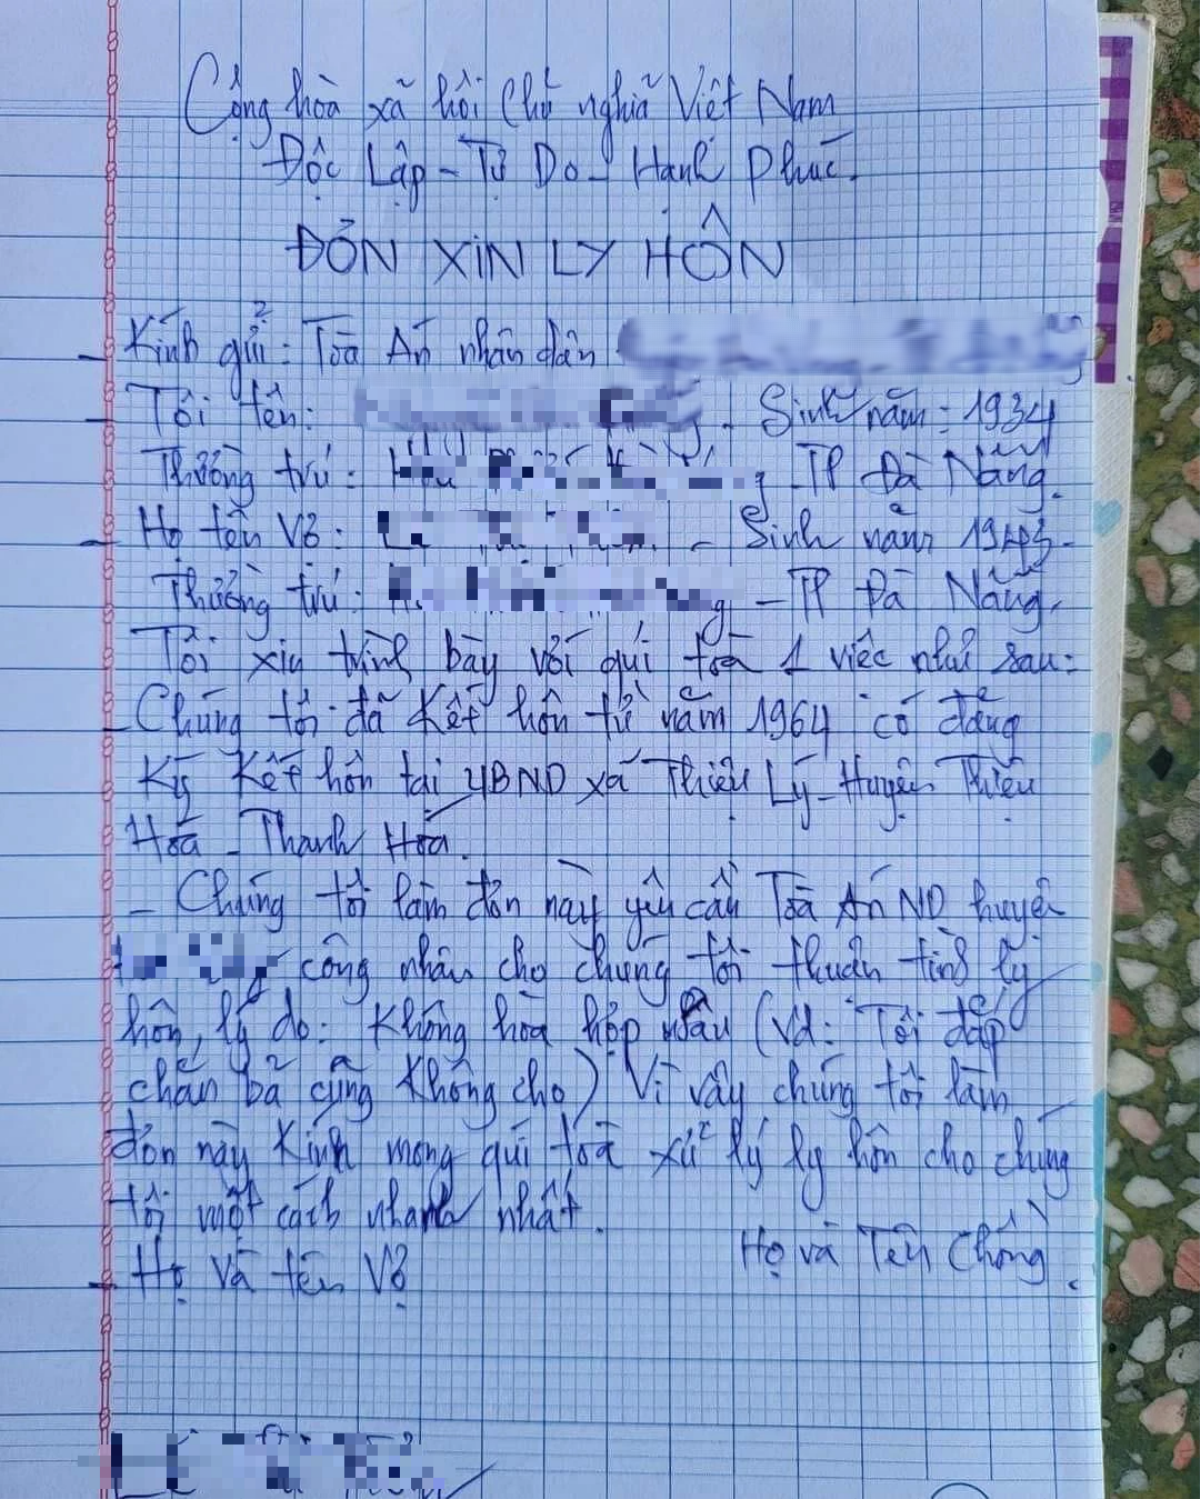 Cộng hòa xã hội Chủ nghĩa Việt Nam
Độc Lập - Tự Do - Hạnh Phúc.
ĐƠN XIN LY HÔN
Kính gửi: Tòa Án nhân dân
Tôi tên: - Sinh năm: 1934
Thường trú: - TP Đà Nẵng.
Họ tên Vợ: - Sinh năm 1943 -
Thường trú: - TP Đà Nẵng.
Tôi xin trình bày với quí tòa 1 việc như sau:
- Chúng tôi đã kết hôn từ năm 1964 có đăng
Ký Kết hôn tại UBND xã Thiệu Lý - Huyện Thiệu
Hoá - Thanh Hóa.
- Chúng tôi làm đơn này yêu cầu Tòa Án ND huyện
công nhân cho chúng tôi thuận tình ly
hôn, lý do: Không hòa hợp nhau (Vd: Tôi đắp
chăn bả cũng không cho) Vì vậy chúng tôi làm
đơn này Kính mong quí tòa xử lý ly hôn cho chúng
tôi một cách nhanh nhất.
Họ và tên Vợ Họ và Tên Chồng.